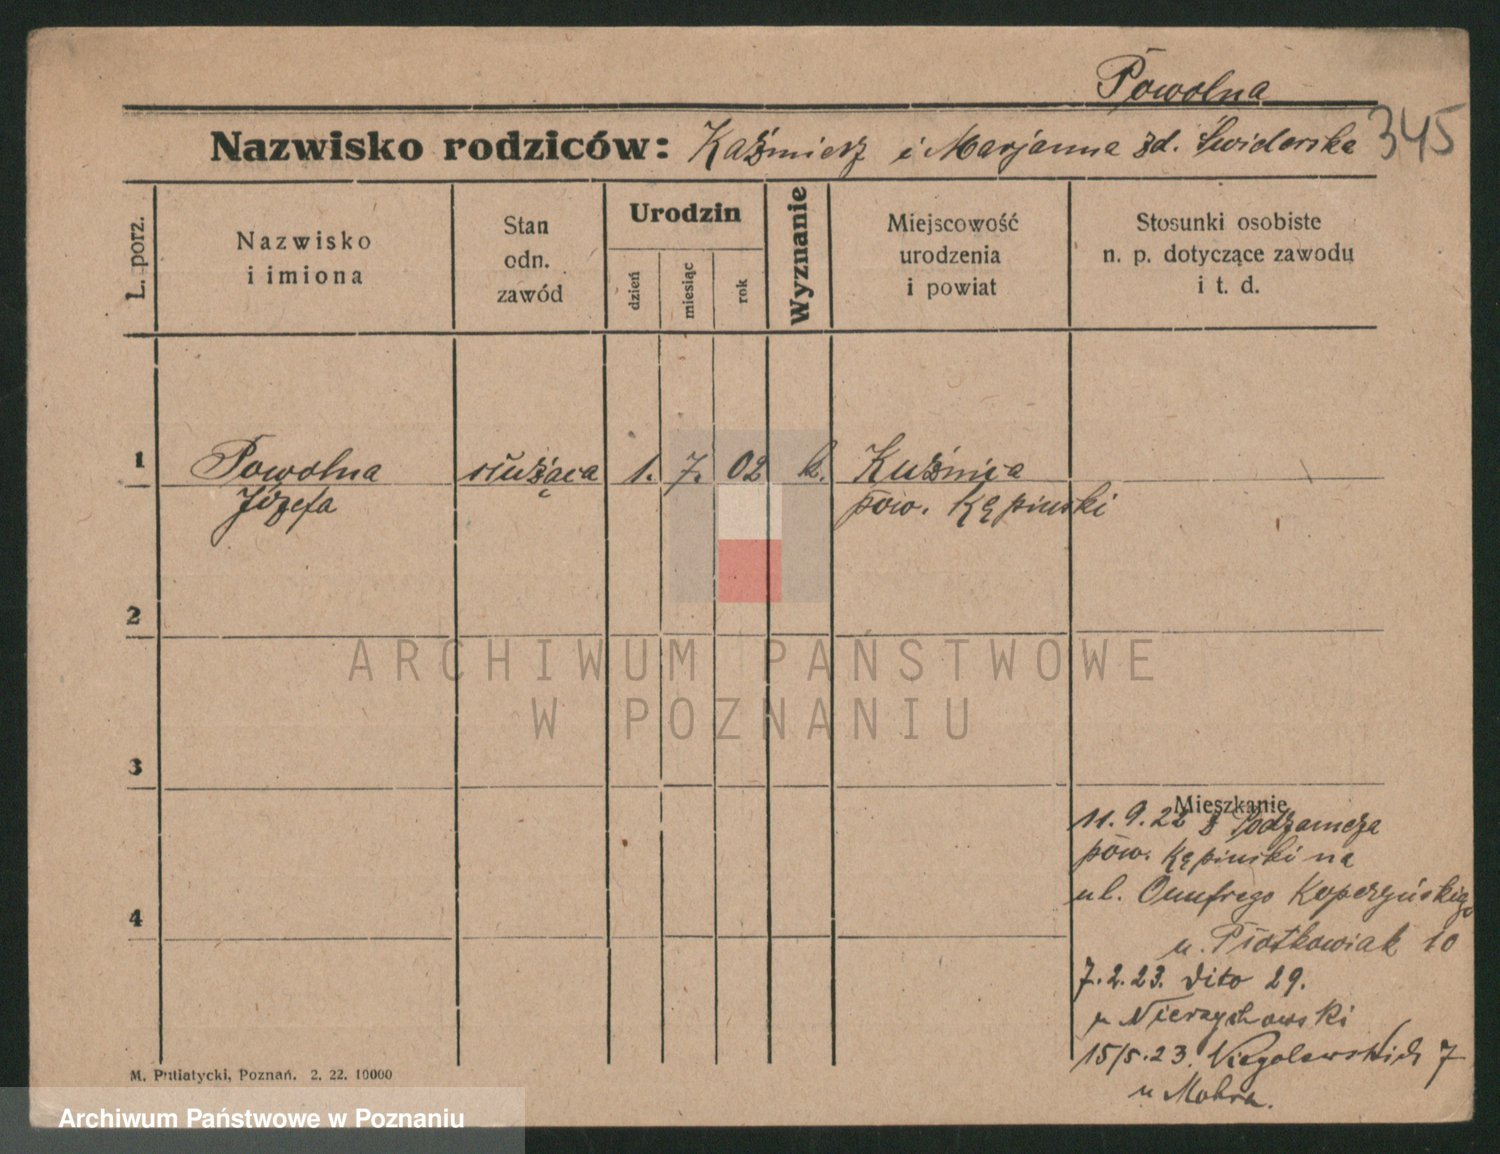 Powolna
Nazwisko rodziców: Kaźmierz i Marjanna zd. Świderska 345
L. porz.
Nazwisko
i imiona
Stan
odn.
zawód
Urodzin
dzień
miesiąc
rok
Wyznanie
Miejscowość
urodzenia
i powiat
Stosunki osobiste
n. p. dotyczące zawodu
i t. d.
1 Powolna służąca 1. 7. 02 k. Kuźnica
Józefa pow. Kępiński
2
3
4
ARCHIWUM PAŃSTWOWE
W POZNANIU
Mieszkanie
11.9.22 z Podzamcza
pow. Kępiński na
ul. Onufrego Kopczyńskiego
u. Piotkowiak 10
7.2.23. dito 29.
u Nierzychowski
15/5.23. Niegolewskich 7
u Mohra.
M. Putiatycki, Poznań. 2. 22. 10000
Archiwum Państwowe w Poznaniu